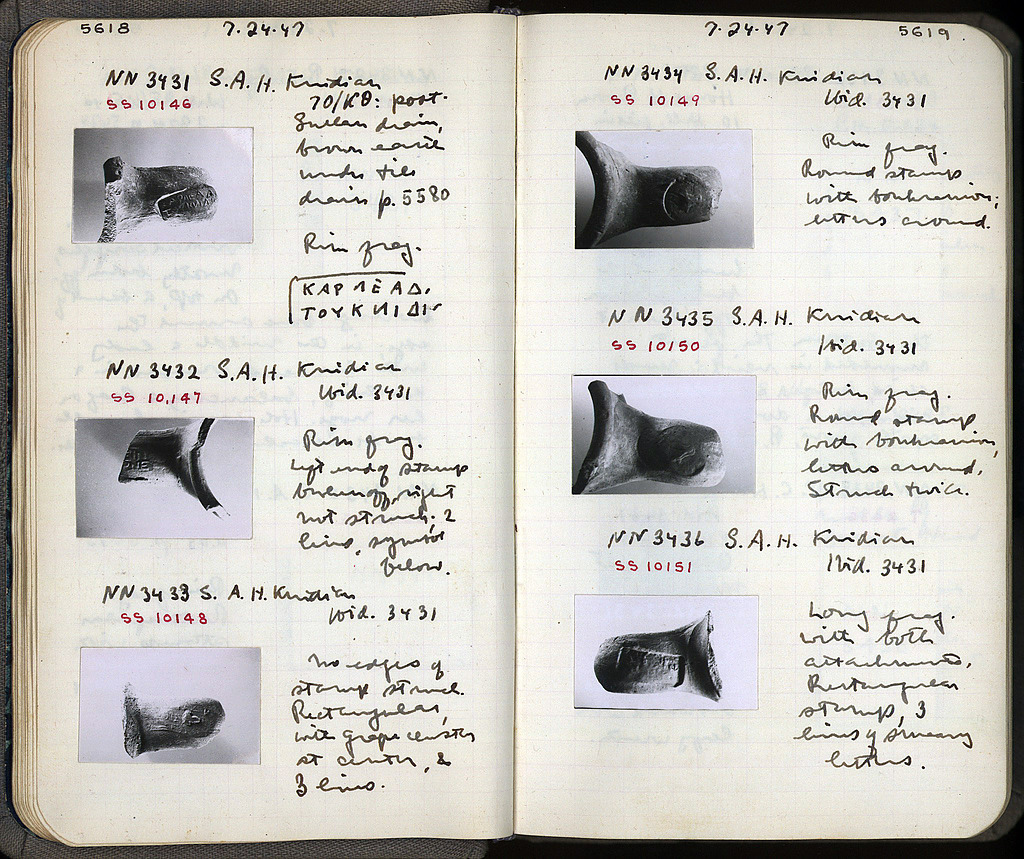 5618
7.24.47
NN 3431 S.A.H. Knidian
SS 10146
70/ΚΘ: post-
Sullan drain,
brown earth
under tile
drain p. 5580
Rim frag.
ΚΑΡΝΕΑΔ.
ΤΟΥΚΝΙΔΙ
NN 3432 S.A.H. Knidian
SS 10,147
Ibid. 3431
Rim frag.
Left end of stamp
broken off, right
not struck; 2
lines, symbol
below.
NN 3433 S.A.H. Knidian
SS 10148
Ibid. 3431
No edges of
stamp struck.
Rectangular,
with grape cluster
at center, &
3 lines.
7.24.47
5619
NN 3434 S.A.H. Knidian
SS 10149
Ibid. 3431
Rim frag.
Round stamp
with boukranion;
letters around.
NN 3435 S.A.H. Knidian
SS 10150
Ibid. 3431
Rim frag.
Round stamp
with boukranion,
letters around.
Struck twice.
NN 3436 S.A.H. Knidian
SS 10151
Ibid. 3431
Long frag.
with both
attachments.
Rectangular
stamp, 3
lines of smeary
letters.